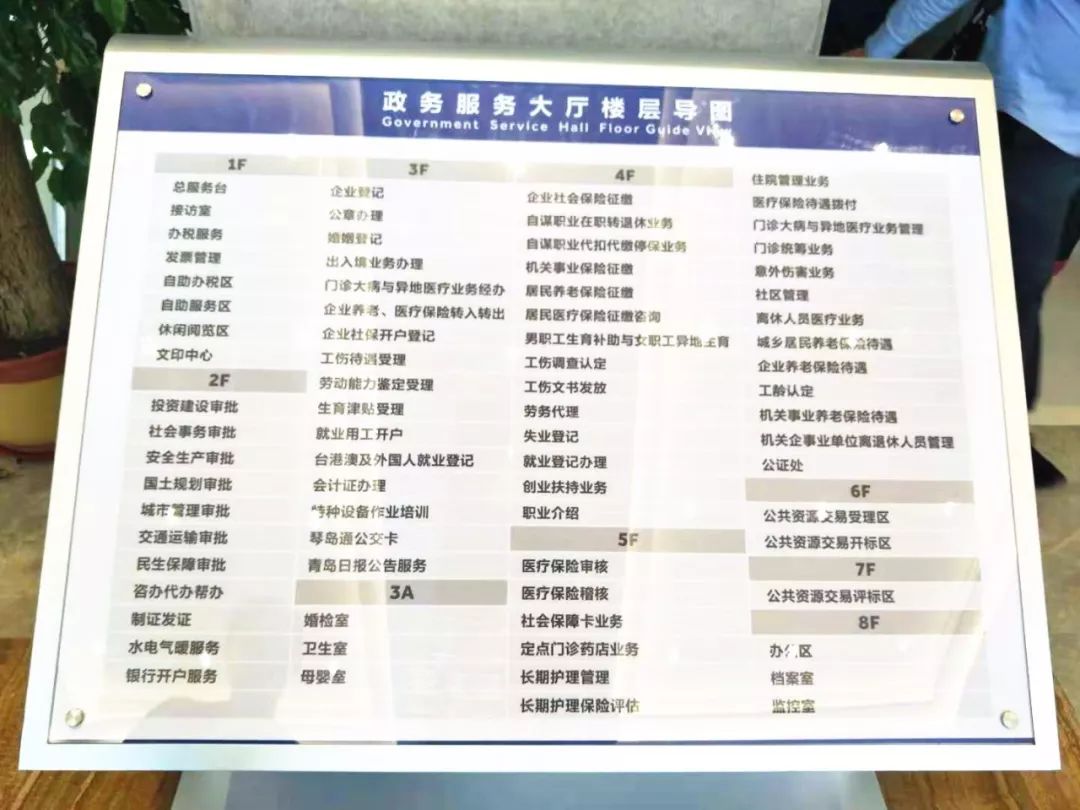 政务服务大厅楼层导图
Government Service Hall Floor Guide View
1F
总服务台
接访室
办税服务
发票管理
自助办税区
自助服务区
休闲阅览区
文印中心
2F
投资建设审批
社会事务审批
安全生产审批
国土规划审批
城市管理审批
交通运输审批
民生保障审批
咨办代办帮办
制证发证
水电气暖服务
银行开户服务
3F
企业登记
公章办理
婚姻登记
出入境业务办理
门诊大病与异地医疗业务经办
企业养老、医疗保险转入转出
企业社保开户登记
工伤待遇受理
劳动能力鉴定受理
生育津贴受理
就业用工开户
台港澳及外国人就业登记
会计证办理
特种设备作业培训
琴岛通公交卡
青岛日报公告服务
3A
婚检室
卫生室
母婴室
4F
企业社会保险征缴
自谋职业在职转退休业务
自谋职业代扣代缴停保业务
机关事业保险征缴
居民养老保险征缴
居民医疗保险征缴咨询
男职工生育补助与女职工异地生育
工伤调查认定
工伤文书发放
劳务代理
失业登记
就业登记办理
创业扶持业务
职业介绍
5F
医疗保险审核
医疗保险稽核
社会保障卡业务
定点门诊药店业务
长期护理管理
长期护理保险评估
住院管理业务
医疗保险待遇拨付
门诊大病与异地医疗业务管理
门诊统筹业务
意外伤害业务
社区管理
离休人员医疗业务
城乡居民养老保险待遇
企业养老保险待遇
工龄认定
机关事业养老保险待遇
机关企事业单位离退休人员管理
公证处
6F
公共资源交易受理区
公共资源交易开标区
7F
公共资源交易评标区
8F
办公区
档案室
监控室